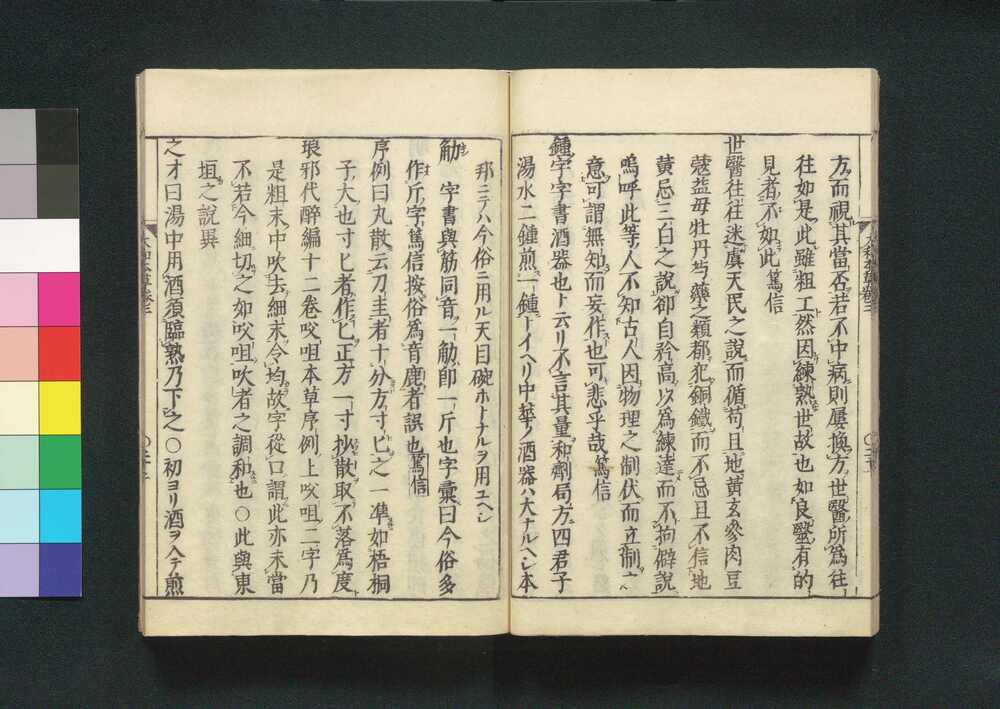 方而視其當否若不中病則屡換方世醫所為往
往如是此雖粗工然因練熟世故也如良毉有的
見者不如此篤信
世醫往往迷虞天民之說而循苟且地黄玄參肉豆
蔻益母牡丹芍藥之類都犯銅鐵而不忌且不信地
黄忌三白之說卻自矜高以為練達而不拘僻說
嗚呼此等人不知古人因物理之制伏而立制
意可謂無知而妄作也可悲乎哉篤信
鍾字字書酒器也ト云リ不言其量和劑局方四君子
湯水二鍾煎一鍾トイヘリ中華ノ酒器ハ大ナルヘシ本
邦ニテハ今俗ニ用ル天目碗ホトナルヲ用ユヘシ
觔 字書與筋同音一觔卽一斤也字彙曰今俗多
作斤字篤信按俗為音鹿者誤也篤信
序例曰丸散云刀圭者十分方寸匕之一凖如梧桐
子大也寸匕者作匕正方一寸抄散取不落為度
琅邪代醉編十二卷㕮咀本草序例上㕮咀二字乃
是粗末中吹去細末今均故字從口謂此亦未當
不若今細切之如㕮咀吹者之調和也〇此與東
垣之說異
之才曰湯中用酒須臨熟乃下之〇初ヨリ酒ヲ入テ煎